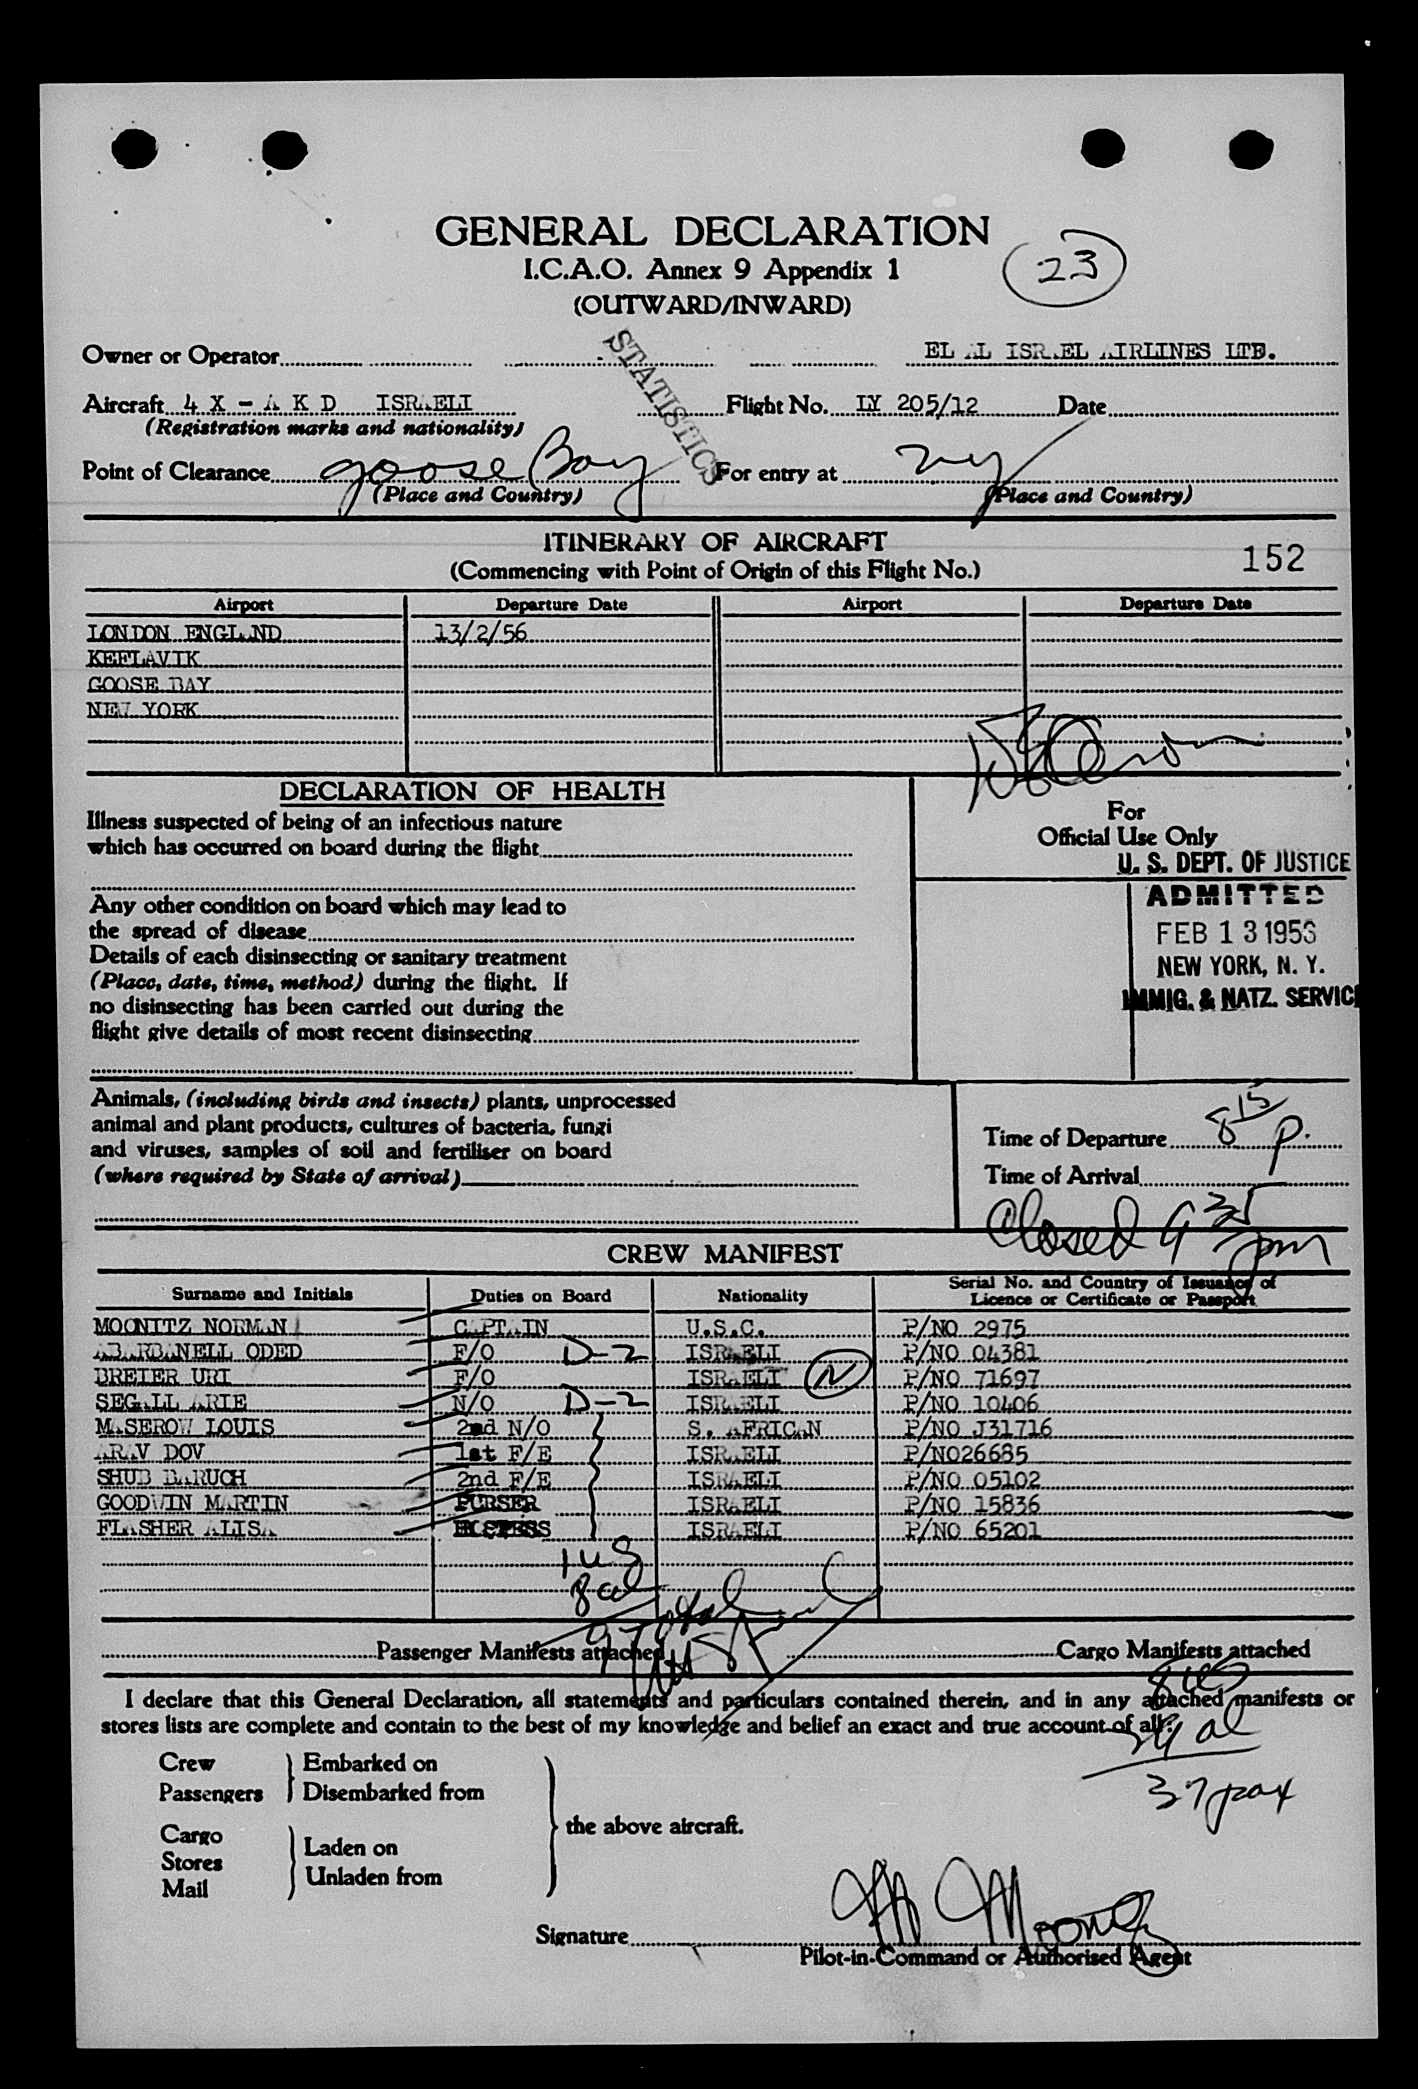 GENERAL DECLARATION
I.C.A.O. Annex 9 Appendix 1
23
(OUTWARD/INWARD)
STATISTICS
Owner or Operator EL AL ISRAEL AIRLINES LTD.
Aircraft 4 X - A K D ISRAELI Flight No. LY 205/12 Date
(Registration marks and nationality)
Point of Clearance Goose Bay For entry at NY
(Place and Country) (Place and Country)
ITINERARY OF AIRCRAFT
(Commencing with Point of Origin of this Flight No.)
152
Airport Departure Date Airport Departure Date
LONDON ENGLAND 13/2/56
KEFLAVIK
GOOSE BAY
NEW YORK
DECLARATION OF HEALTH
Illness suspected of being of an infectious nature
which has occurred on board during the flight
Any other condition on board which may lead to
the spread of disease
Details of each disinsecting or sanitary treatment
(Place, date, time, method) during the flight. If
no disinsecting has been carried out during the
flight give details of most recent disinsecting
For
Official Use Only
U. S. DEPT. OF JUSTICE
ADMITTED
FEB 13 1956
NEW YORK, N. Y.
IMMIG. & NATZ. SERVICE
Animals, (including birds and insects) plants, unprocessed
animal and plant products, cultures of bacteria, fungi
and viruses, samples of soil and fertiliser on board
(where required by State of arrival)
Time of Departure 8 15 p.
Time of Arrival
Closed 9 35 pm
CREW MANIFEST
Surname and Initials Duties on Board Nationality Serial No. and Country of Issuance of
Licence or Certificate or Passport
MOONITZ NORMAN CAPTAIN U.S.C. P/NO 2975
ABARBANELL ODED F/O D-2 ISRAELI P/NO 04381
BREIER URI F/O ISRAELI N P/NO 71697
SEGALL ARIE N/O D-2 ISRAELI P/NO 10406
MASEROW LOUIS 2nd N/O S. AFRICAN P/NO J31716
ARAV DOV 1st F/E ISRAELI P/NO26685
SHUB BARUCH 2nd F/E ISRAELI P/NO 05102
GOODWIN MARTIN PURSER ISRAELI P/NO 15836
FLASHER ALISA HOSTESS ISRAELI P/NO 65201
1 us
8 al
9 Total
Passenger Manifests attached Cargo Manifests attached
I declare that this General Declaration, all statements and particulars contained therein, and in any attached manifests or
stores lists are complete and contain to the best of my knowledge and belief an exact and true account of all:
al
37 pax
Crew
Passengers
Embarked on
Disembarked from
Cargo
Stores
Mail
Laden on
Unladen from
the above aircraft.
Signature N Moonitz
Pilot-in-Command or Authorised Agent